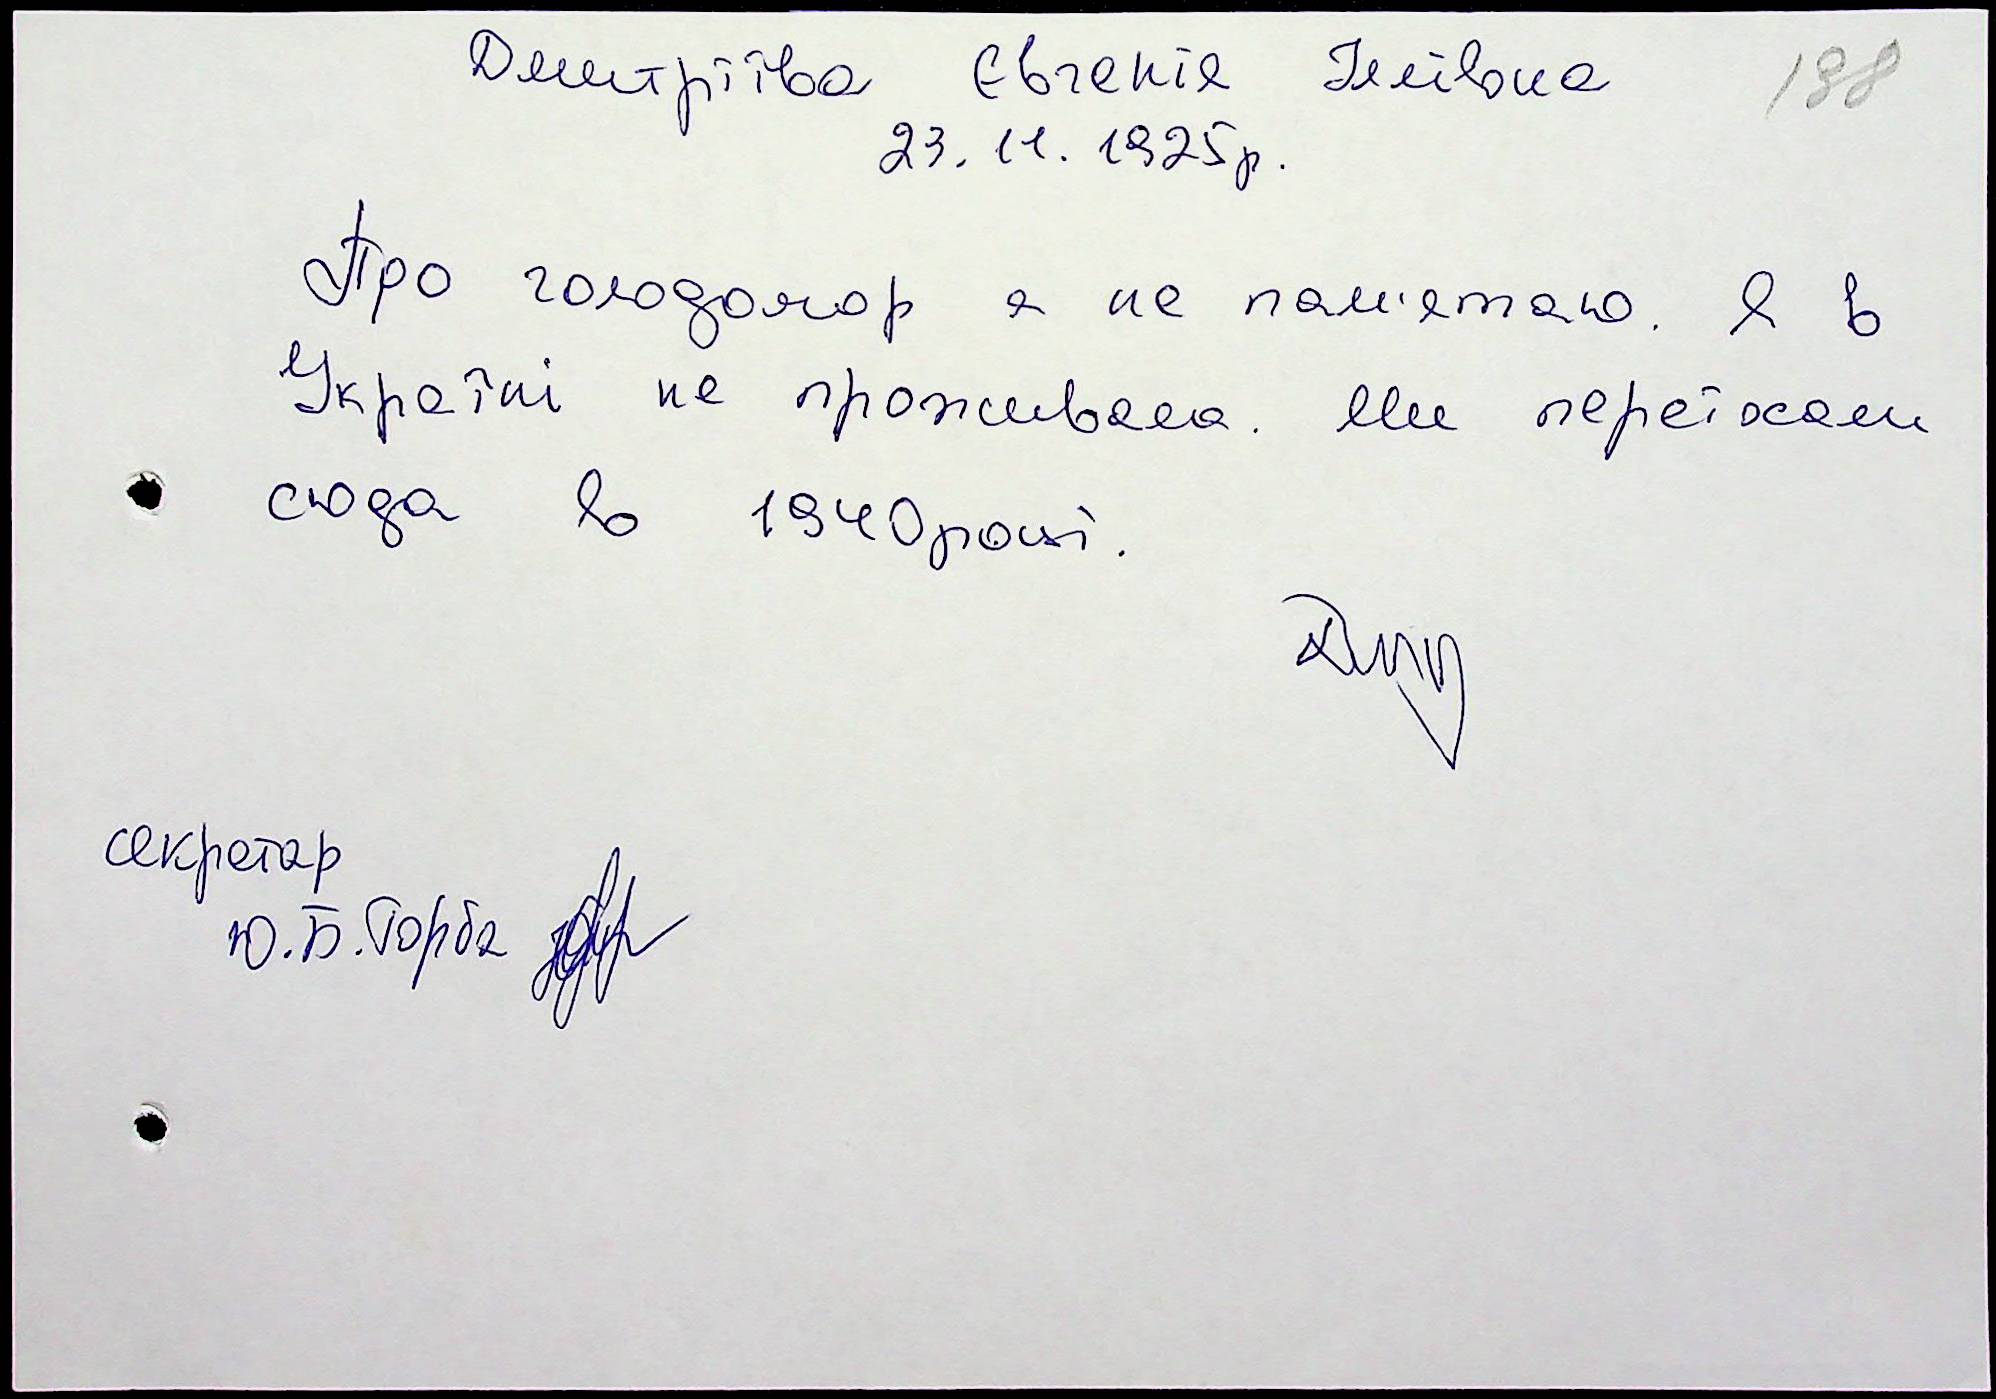 Дмитріїва Євгенія Іллівна 188
23.11.1925р.
Про голодомор я не пам'ятаю. Я в
Україні не проживала. Ми переїхали
сюда в 1940 році.
секретар
Ю.Б.Горба